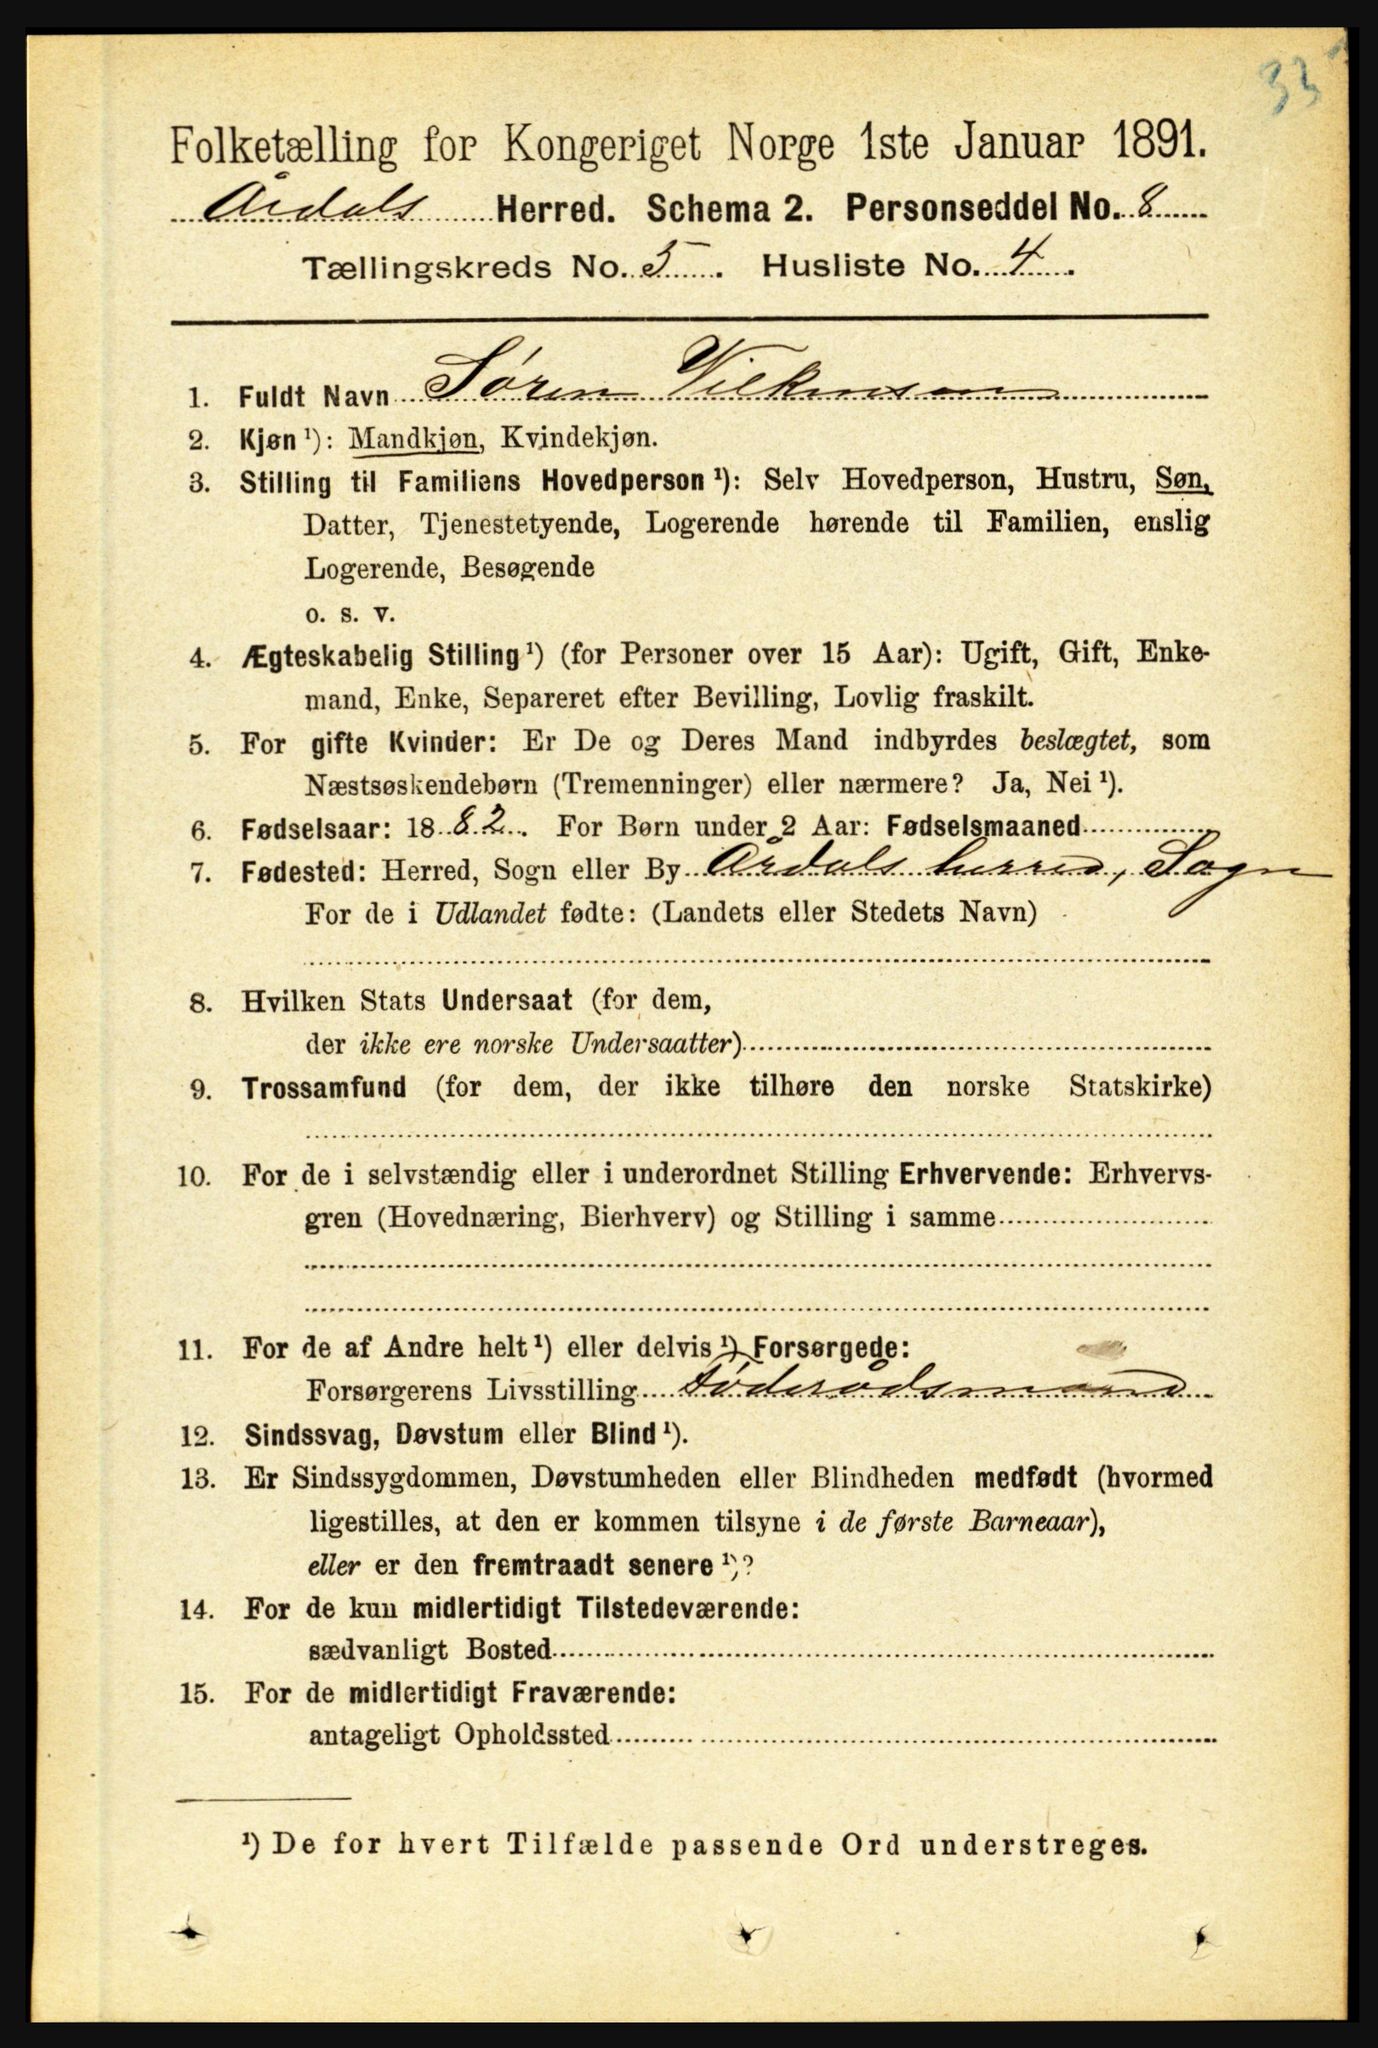 33
Folketælling for Kongeriget Norge 1ste Januar 1891.
Årdals Herred. Schema 2. Personseddel No. 8
Tællingskreds No. 5. Husliste No. 4.
1. Fuldt Navn Søren Vilkenson
2. Kjøn ¹): Mandkjøn, Kvindekjøn.
3. Stilling til Familiens Hovedperson ¹): Selv Hovedperson, Hustru, Søn,
Datter, Tjenestetyende, Logerende hørende til Familien, enslig
Logerende, Besøgende
o. s. v.
4. Ægteskabelig Stilling ¹) (for Personer over 15 Aar): Ugift, Gift, Enke-
mand, Enke, Separeret efter Bevilling, Lovlig fraskilt.
5. For gifte Kvinder: Er De og Deres Mand indbyrdes beslægtet, som
Næstsøskendebørn (Tremenninger) eller nærmere? Ja, Nei ¹).
6. Fødselsaar: 1882. For Børn under 2 Aar: Fødselsmaaned
7. Fødested: Herred, Sogn eller By Årdals herred, Sogn
For de i Udlandet fødte: (Landets eller Stedets Navn)
8. Hvilken Stats Undersaat (for dem,
der ikke ere norske Undersaatter)
9. Trossamfund (for dem, der ikke tilhøre den norske Statskirke)
10. For de i selvstændig eller i underordnet Stilling Erhvervende: Erhvervs-
gren (Hovednæring, Bierhverv) og Stilling i samme
11. For de af Andre helt ¹) eller delvis ¹) Forsørgede:
Forsørgerens Livsstilling Føderådsmand
12. Sindssvag, Døvstum eller Blind ¹).
13. Er Sindssygdommen, Døvstumheden eller Blindheden medfødt (hvormed
ligestilles, at den er kommen tilsyne i de første Barneaar),
eller er den fremtraadt senere ¹)?
14. For de kun midlertidigt Tilstedeværende:
sædvanligt Bosted
15. For de midlertidigt Fraværende:
antageligt Opholdssted
¹) De for hvert Tilfælde passende Ord understreges.